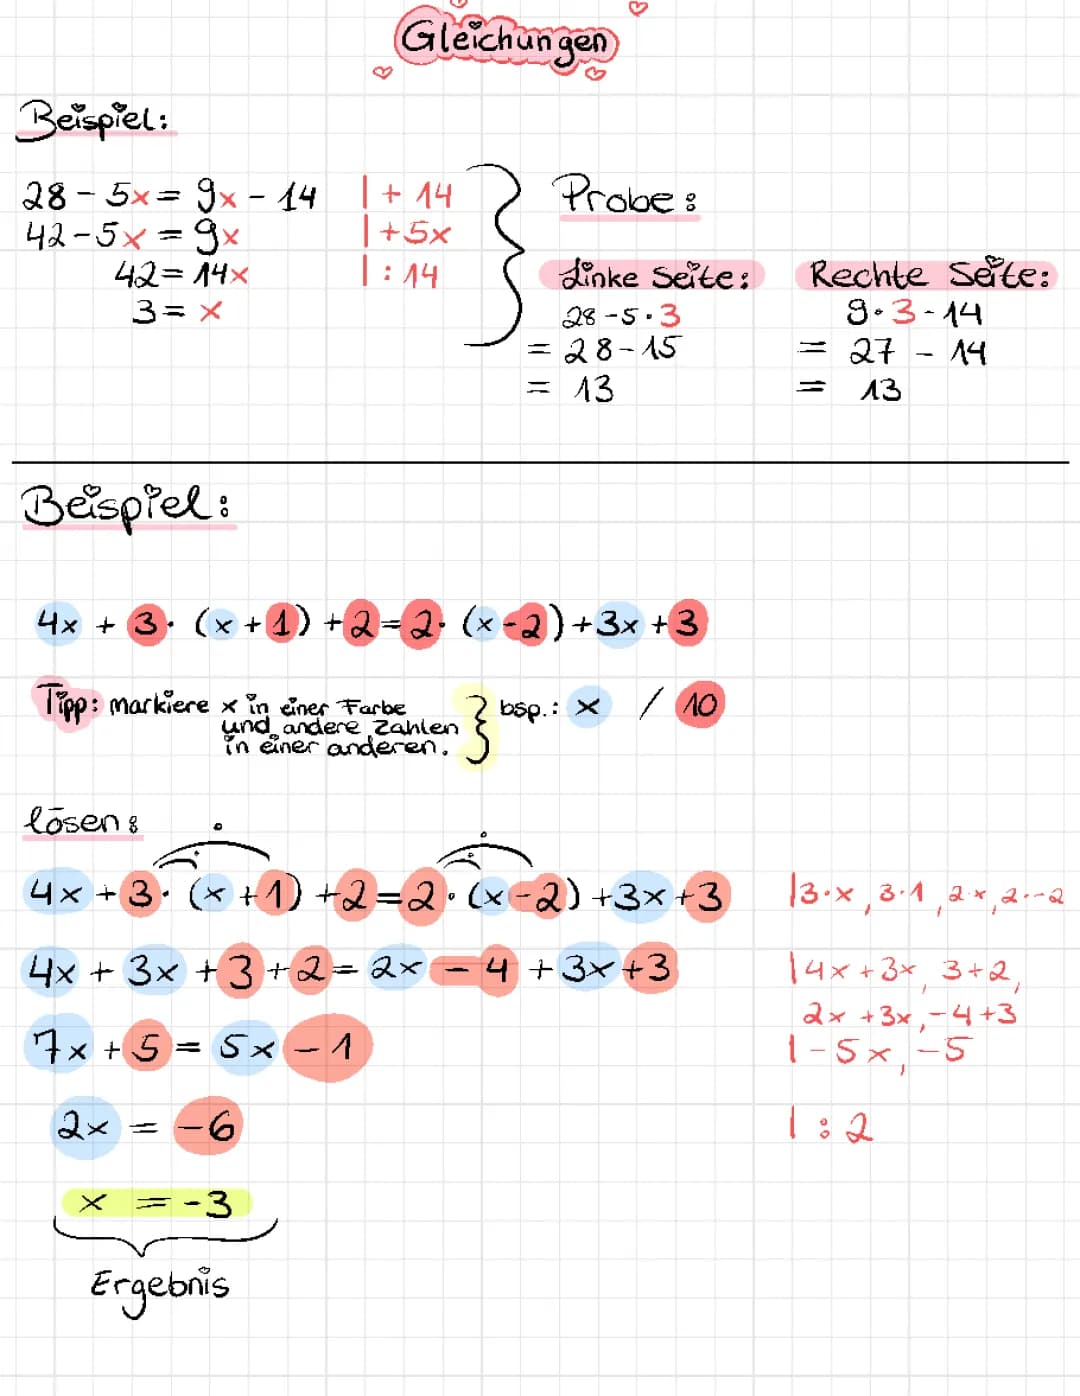 Gleichungen
Beispiel:
28 - 5x = 9x - 14 | + 14
42 - 5x = 9x | +5x
42 = 14x | : 14
3 = x
Probe:
Linke Seite:
28 - 5 · 3
= 28 - 15
= 13
Rechte Seite:
9 · 3 - 14
= 27 - 14
= 13
Beispiel:
4x + 3 · (x + 1) + 2 = 2 · (x - 2) + 3x + 3
Tipp: markiere x in einer Farbe
und andere Zahlen
in einer anderen.
bsp.: x / 10
lösen:
4x + 3 · (x + 1) + 2 = 2 · (x - 2) + 3x + 3 | 3·x, 3·1, 2x, 2·-2
4x + 3x + 3 + 2 = 2x - 4 + 3x + 3 | 4x + 3x, 3+2,
2x + 3x, -4+3
7x + 5 = 5x - 1 | - 5x, -5
2x = -6 | : 2
x = -3
Ergebnis